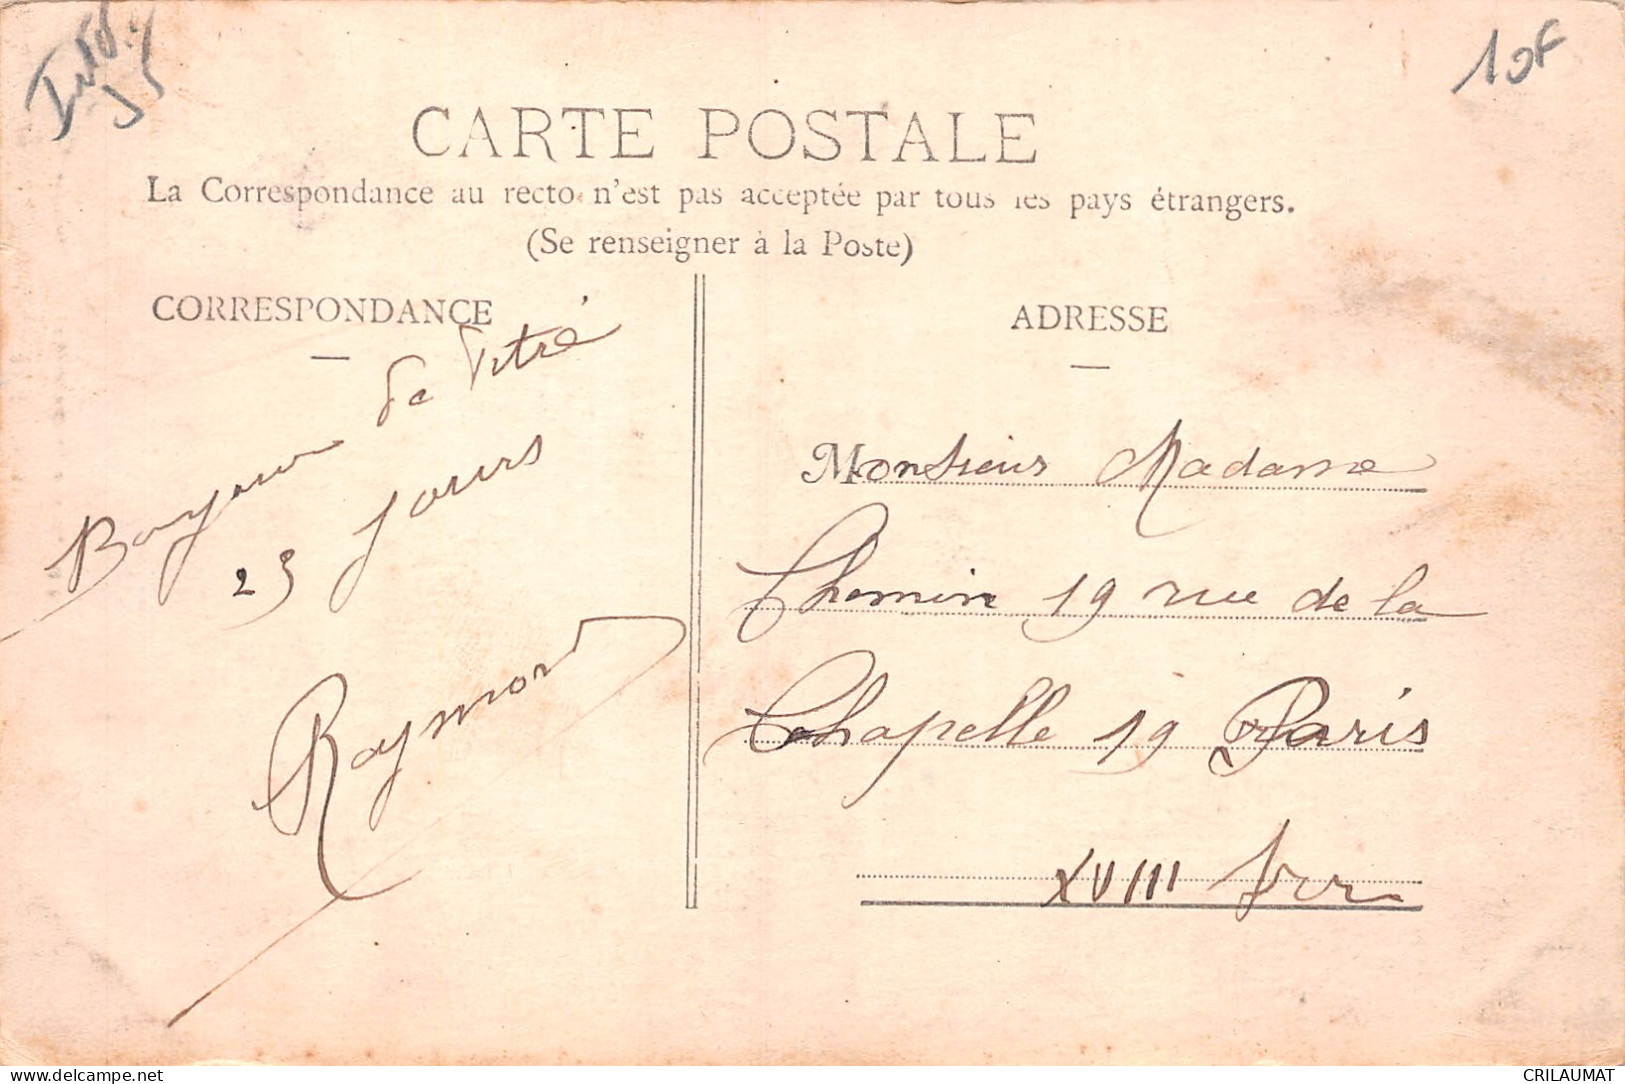 10F
CARTE POSTALE
La Correspondance au recto n'est pas acceptée par tous les pays étrangers.
(Se renseigner à la Poste)
CORRESPONDANCE
Bonjour de Vitré
23 Jours
Raymond
ADRESSE
Monsieur Madame
Chemin 19 rue de la
Chapelle 19 Paris
XVIII
delcampe.net
CRILAUMAT